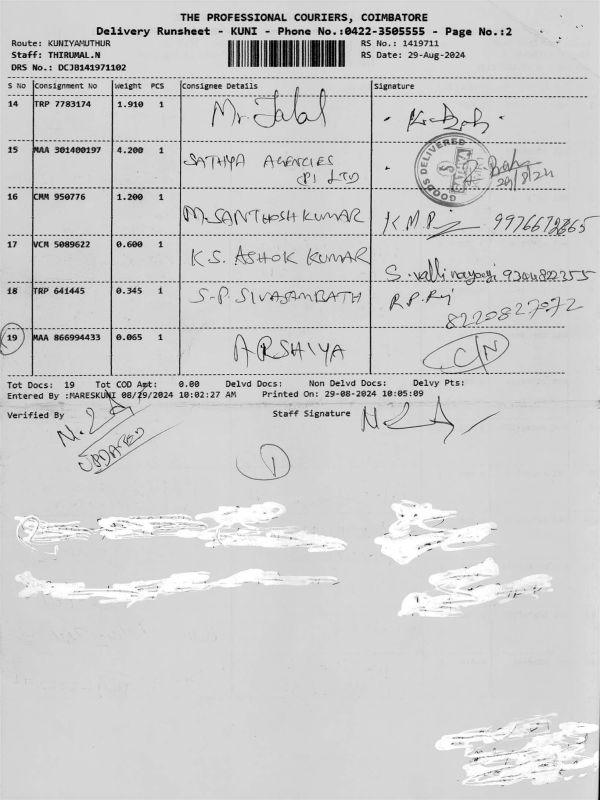 THE PROFESSIONAL COURIERS, COIMBATORE
Delivery Runsheet - KUNI - Phone No.:0422-3505555 - Page No.:2
Route: KUNIYAMUTHUR RS No.: 1419711
Staff: THIRUMAL.N RS Date: 29-Aug-2024
DRS No.: DCJB141971102
S No Consignment No Weight PCS Consignee Details Signature
14 TRP 7783174 1.910 1 Mr. Jalal
15 MAA 301400197 4.200 1 SATHYA AGENCIES (P) LTD GOODS DELIVERED 29/8/24
16 CMM 950776 1.200 1 M.SANTHOSH KUMAR K.M.P 9976672865
17 VCM 5089622 0.600 1 K.S. ASHOK KUMAR S.valli nayagi 9344822255
18 TRP 641445 0.345 1 S.P. SIVASAMBATH R.P.Rj 8220827072
19 MAA 866994433 0.065 1 ARSHIYA C/N
Tot Docs: 19 Tot COD Amt: 0.00 Delvd Docs: Non Delvd Docs: Delvy Pts:
Entered By :MARESKUNI 08/29/2024 10:02:27 AM Printed On: 29-08-2024 10:05:09
Verified By Staff Signature
UPDATED
1